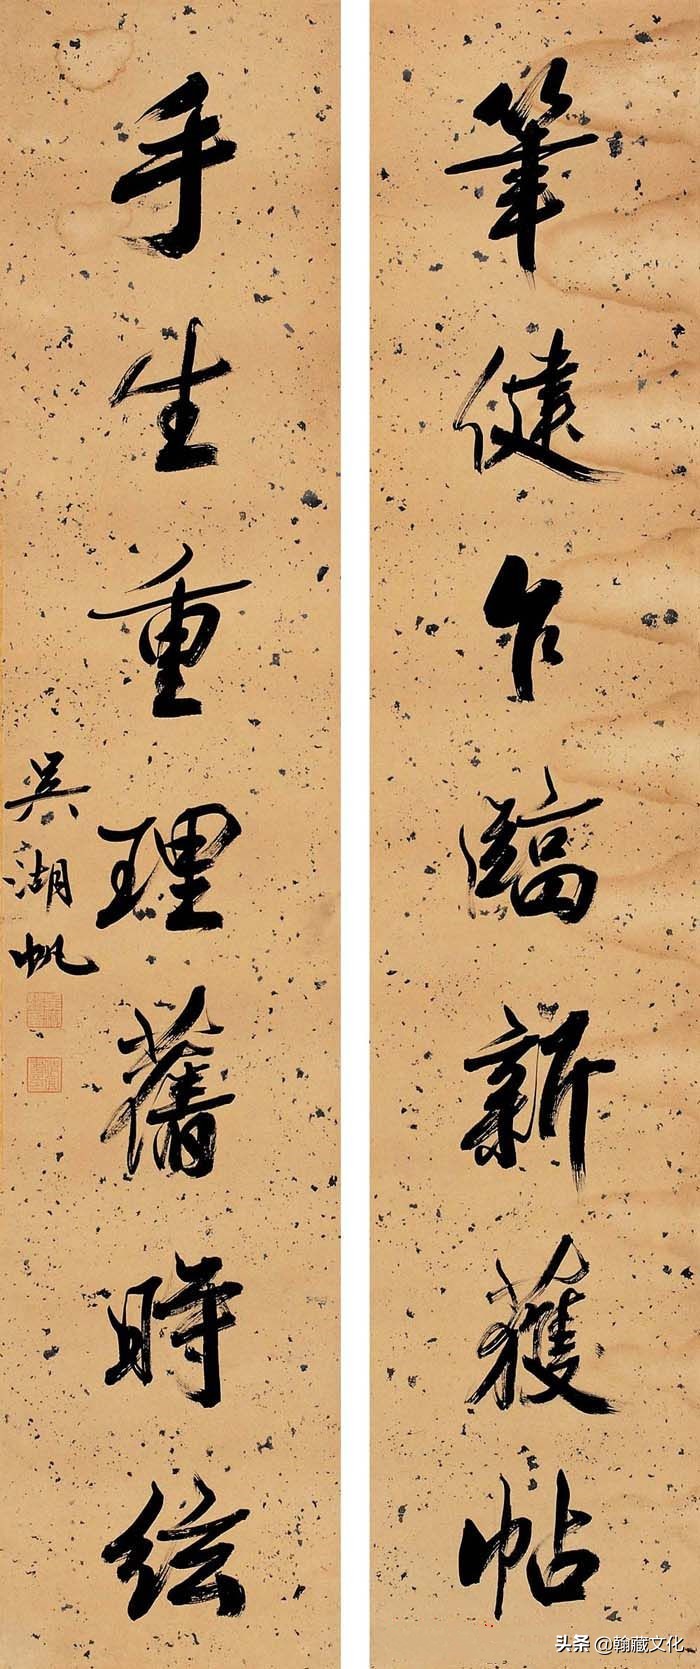 筆健乍臨新獲帖
手生重理舊時絃
吳湖帆
头条 @翰藏文化